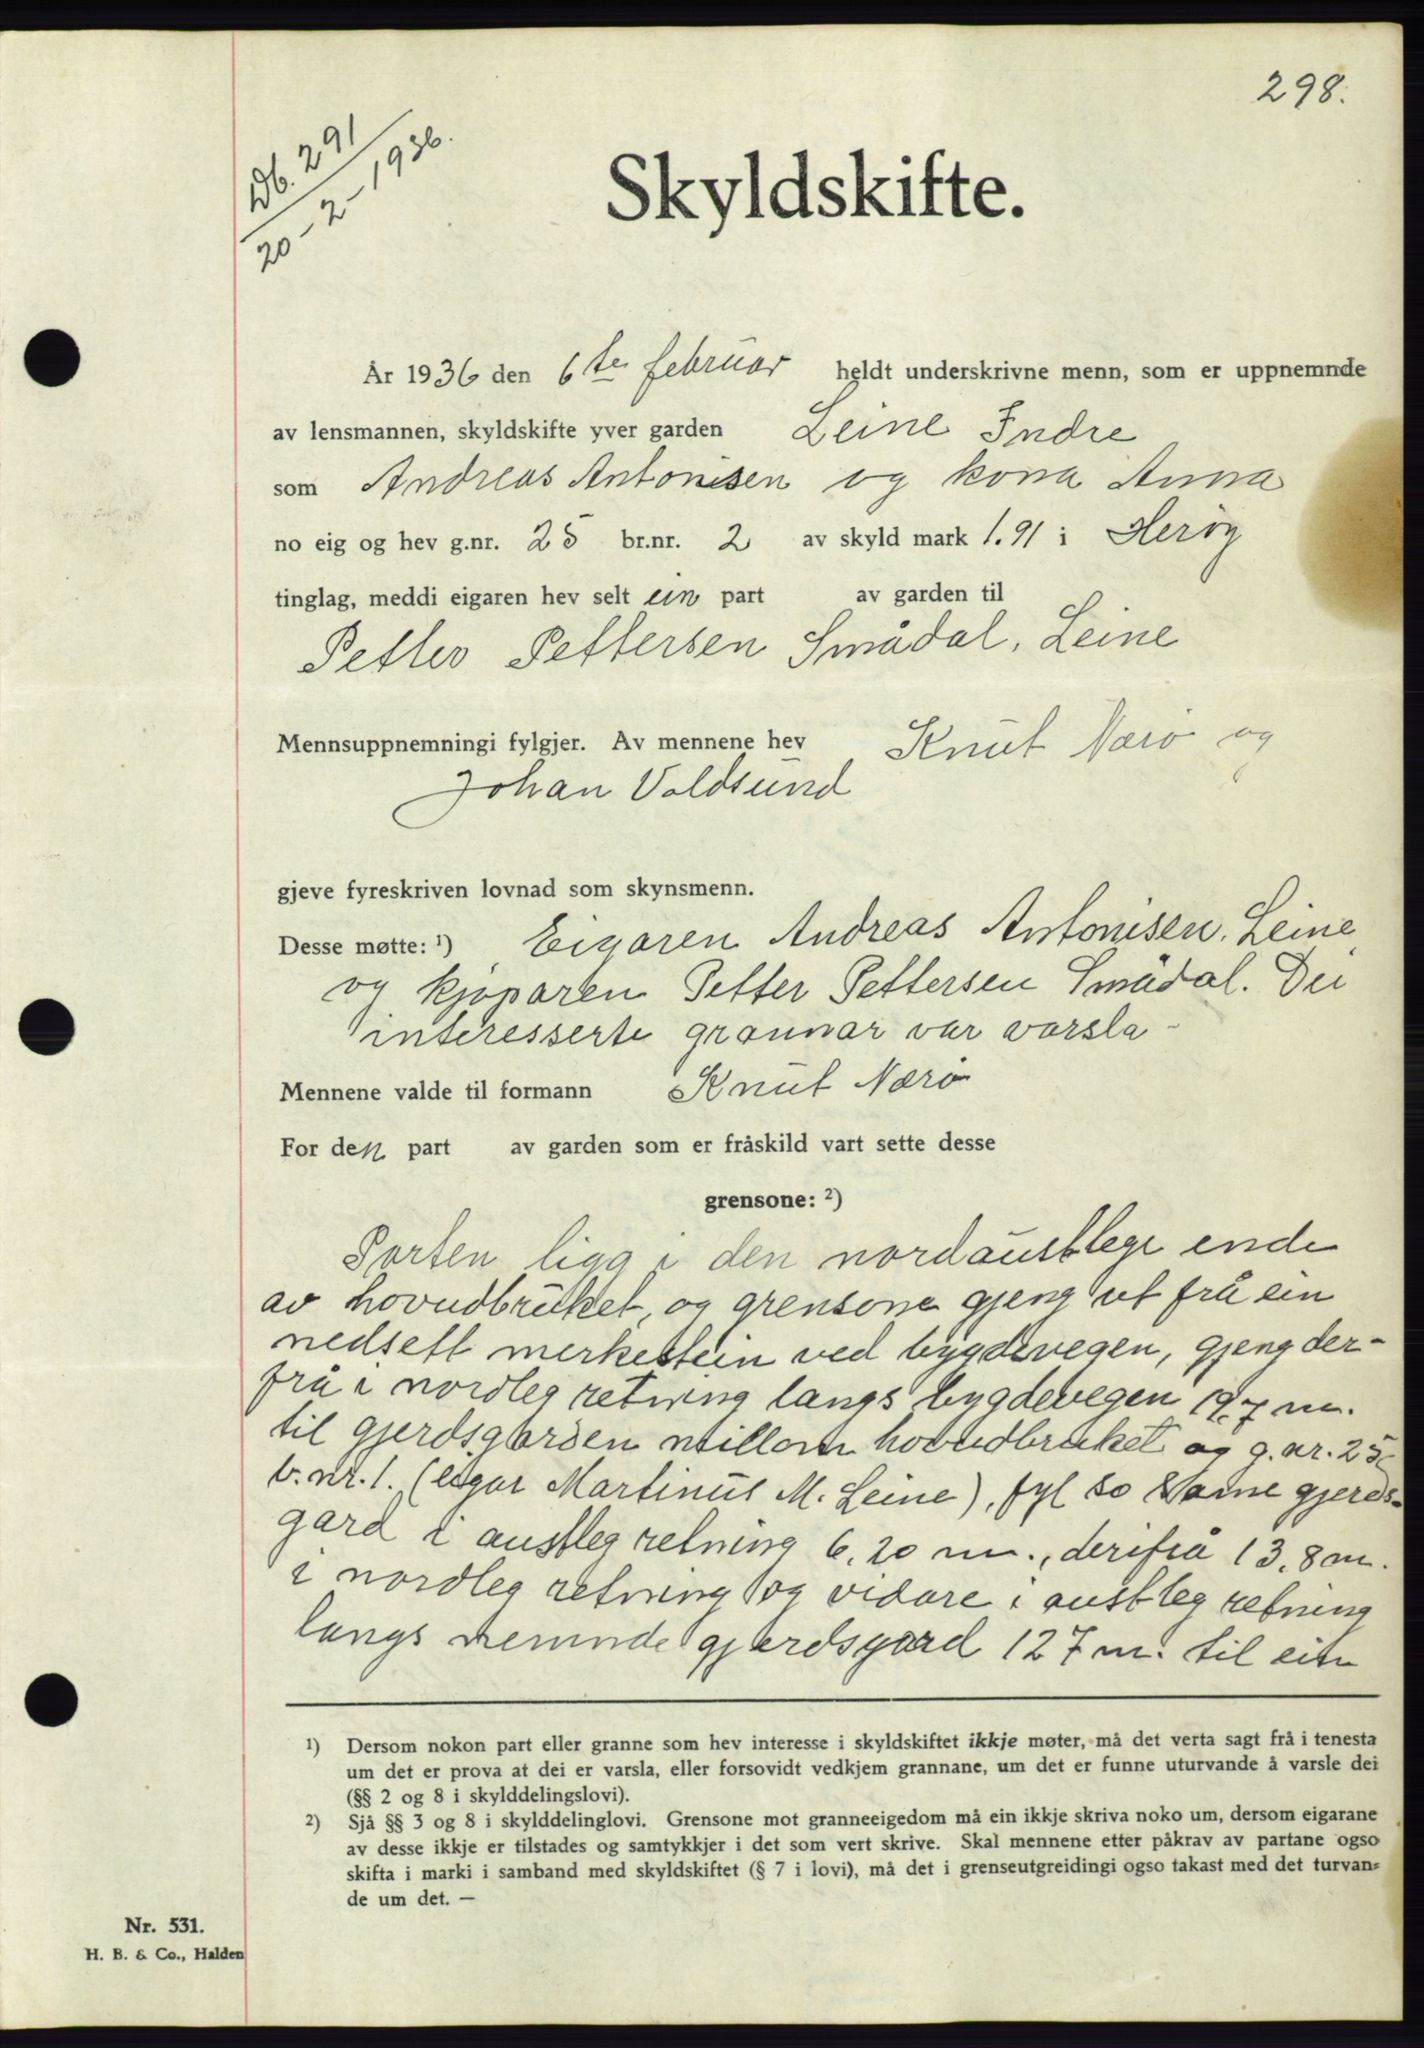 298.
Db. 291
20-2-1936.
Skyldskifte.
År 1936 den 6te februar heldt underskrivne menn, som er uppnemnde
av lensmannen, skyldskifte yver garden Leine Indre
som Andreas Antonisen og kona Anna
no eig og hev g.nr. 25 br.nr. 2 av skyld mark 1.91 i Herøy
tinglag, meddi eigaren hev selt ein part av garden til
Petter Pettersen Smådal, Leine
Mennsuppnemningi fylgjer. Av mennene hev Knut Nærø og
Johan Voldsund
gjeve fyreskriven lovnad som skynsmenn.
Desse møtte: ¹) Eigaren Andreas Antonisen, Leine
og kjøparen Petter Pettersen Smådal. Dei
interesserte grannar var varsla -
Mennene valde til formann Knut Nærø
For den part av garden som er fråskild vart sette desse
grensone: ²)
Parten ligg i den nordaustlege ende
av hovudbruket, og grensone gjeng ut frå ein
nedsett merkestein ved bygdevegen, gjeng der-
frå i nordleg retning langs bygdevegen 19,7 m.
til gjerdsgarden millom hovudbruket og g.nr. 25
b.nr. 1. (eigar Martinus M. Leine), fyl so same gjerds-
gard i austleg retning 6,20 m., derifrå 13,8 m.
i nordleg retning og vidare i austleg retning
langs nemnde gjerdsgard 127 m. til ein
¹) Dersom nokon part eller granne som hev interesse i skyldskiftet ikkje møter, må det verta sagt frå i tenesta
um det er prova at dei er varsla, eller forsovidt vedkjem grannane, um det er funne uturvande å varsle dei
(§§ 2 og 8 i skylddelingslovi).
²) Sjå §§ 3 og 8 i skylddelinglovi. Grensone mot granneeigedom må ein ikkje skriva noko um, dersom eigarane
av desse ikkje er tilstades og samtykkjer i det som vert skrive. Skal mennene etter påkrav av partane ogso
skifta i marki i samband med skyldskiftet (§ 7 i lovi), må det i grenseutgreidingi ogso takast med det turvan=
de um det. —
Nr. 531.
H. B. & Co., Halden